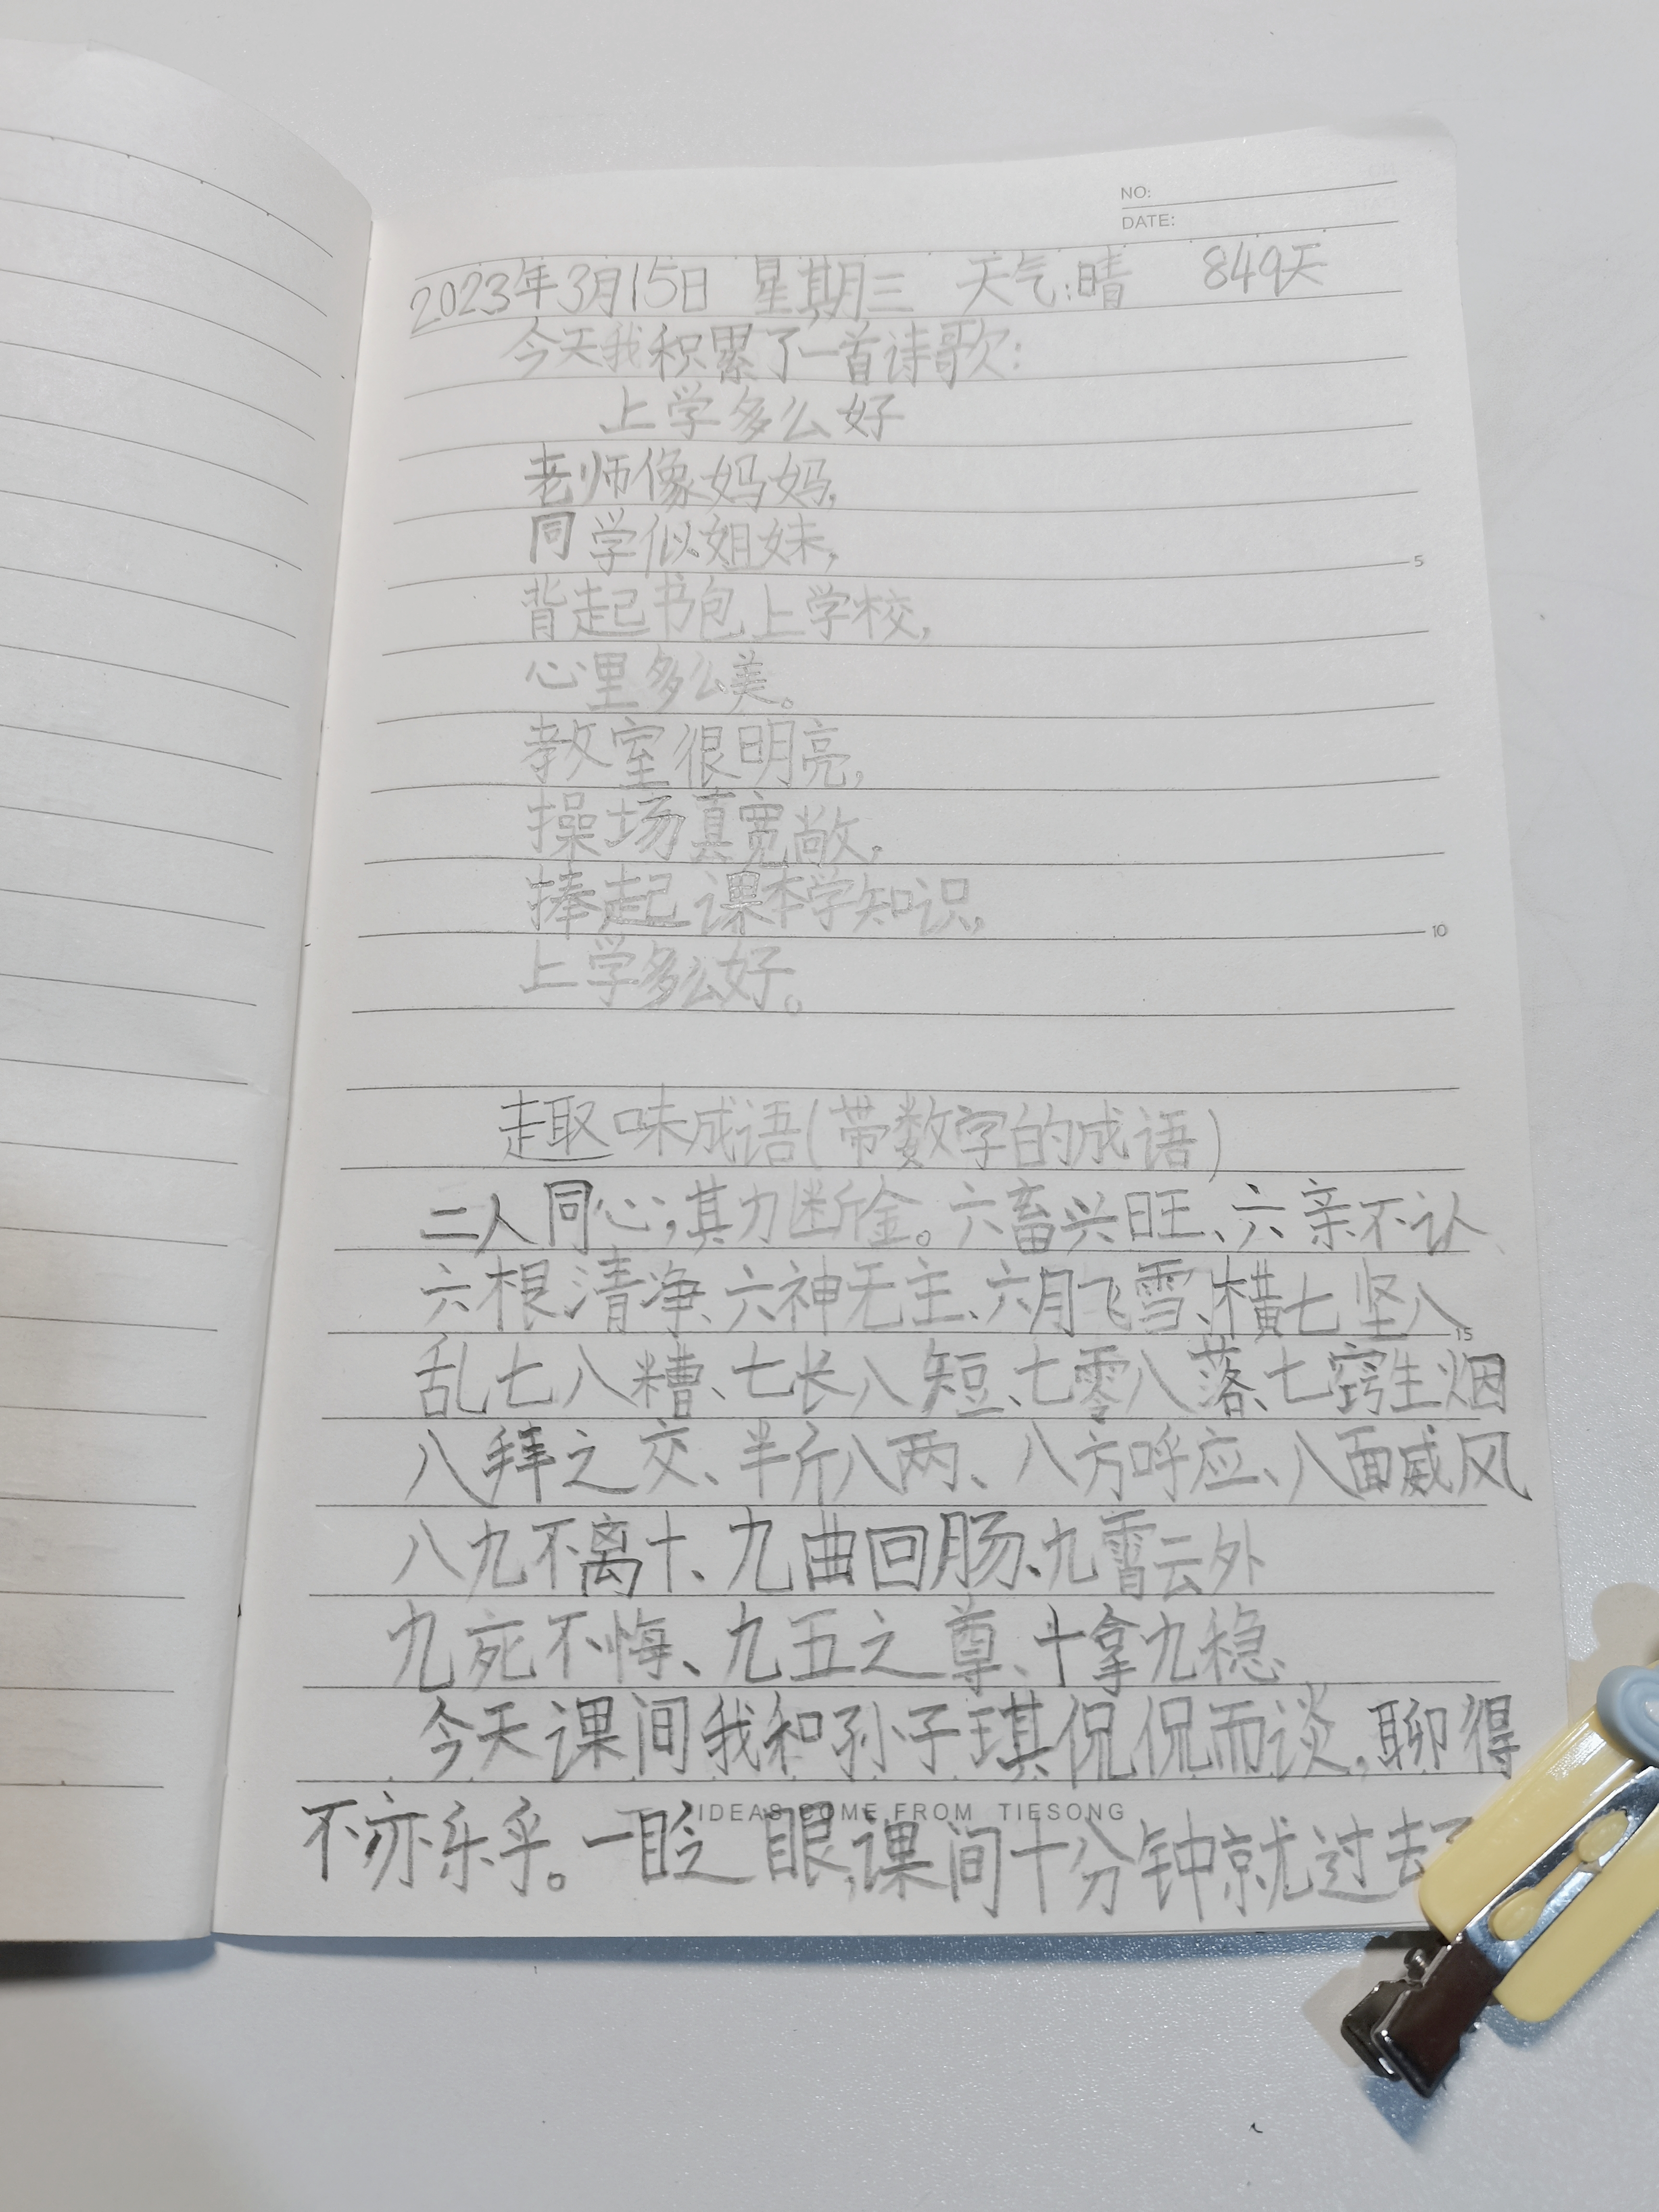 NO:
DATE:
2023年3月15日 星期三 天气:晴 849天
今天我积累了一首诗歌:
上学多么好
老师像妈妈,
同学似姐妹,
背起书包上学校,
心里多么美。
教室很明亮,
操场真宽敞,
捧起课本学知识,
上学多么好。
趣味成语(带数字的成语)
二人同心,其力断金。六畜兴旺、六亲不认、
六根清净、六神无主、六月飞雪、横七坚八
乱七八糟、七长八短、七零八落、七窍生烟
八拜之交、半斤八两、八方呼应、八面威风
八九不离十、九曲回肠、九霄云外
九死不悔、九五之尊、十拿九稳、
今天课间我和孙子琪侃侃而谈,聊得
不亦乐乎。一眨眼,课间十分钟就过去了
IDEAS COME FROM TIESONG
5
10
15